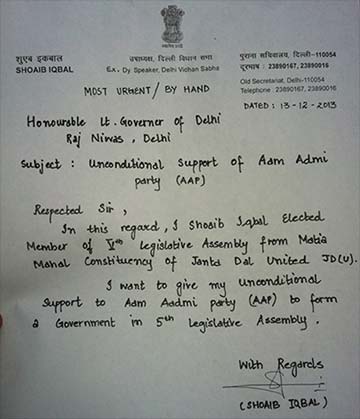 शुएब इकबाल
SHOAIB IQBAL
उपाध्यक्ष, दिल्ली विधान सभा
Ex. Dy. Speaker, Delhi Vidhan Sabha
पुराना सचिवालय, दिल्ली-110054
दूरभाष : 23890167, 23890016
Old Secretariat, Delhi-110054
Telephone : 23890167, 23890016
MOST URGENT / BY HAND
DATED : 13-12-2013
Honourable Lt. Governer of Delhi
Raj Niwas, Delhi
Subject : Unconditional Support of Aam Admi
party (AAP)
Respected Sir,
In this regard, I Shoaib Iqbal Elected
Member of Vth legislative Assembly from Matia
Mahal Constituency of Janta Dal United JD(U).
I want to give my unconditional
Support to Aam Aadmi party (AAP) to form
a Government in 5th Legislative Assembly.
With Regards
(SHOAIB IQBAL)